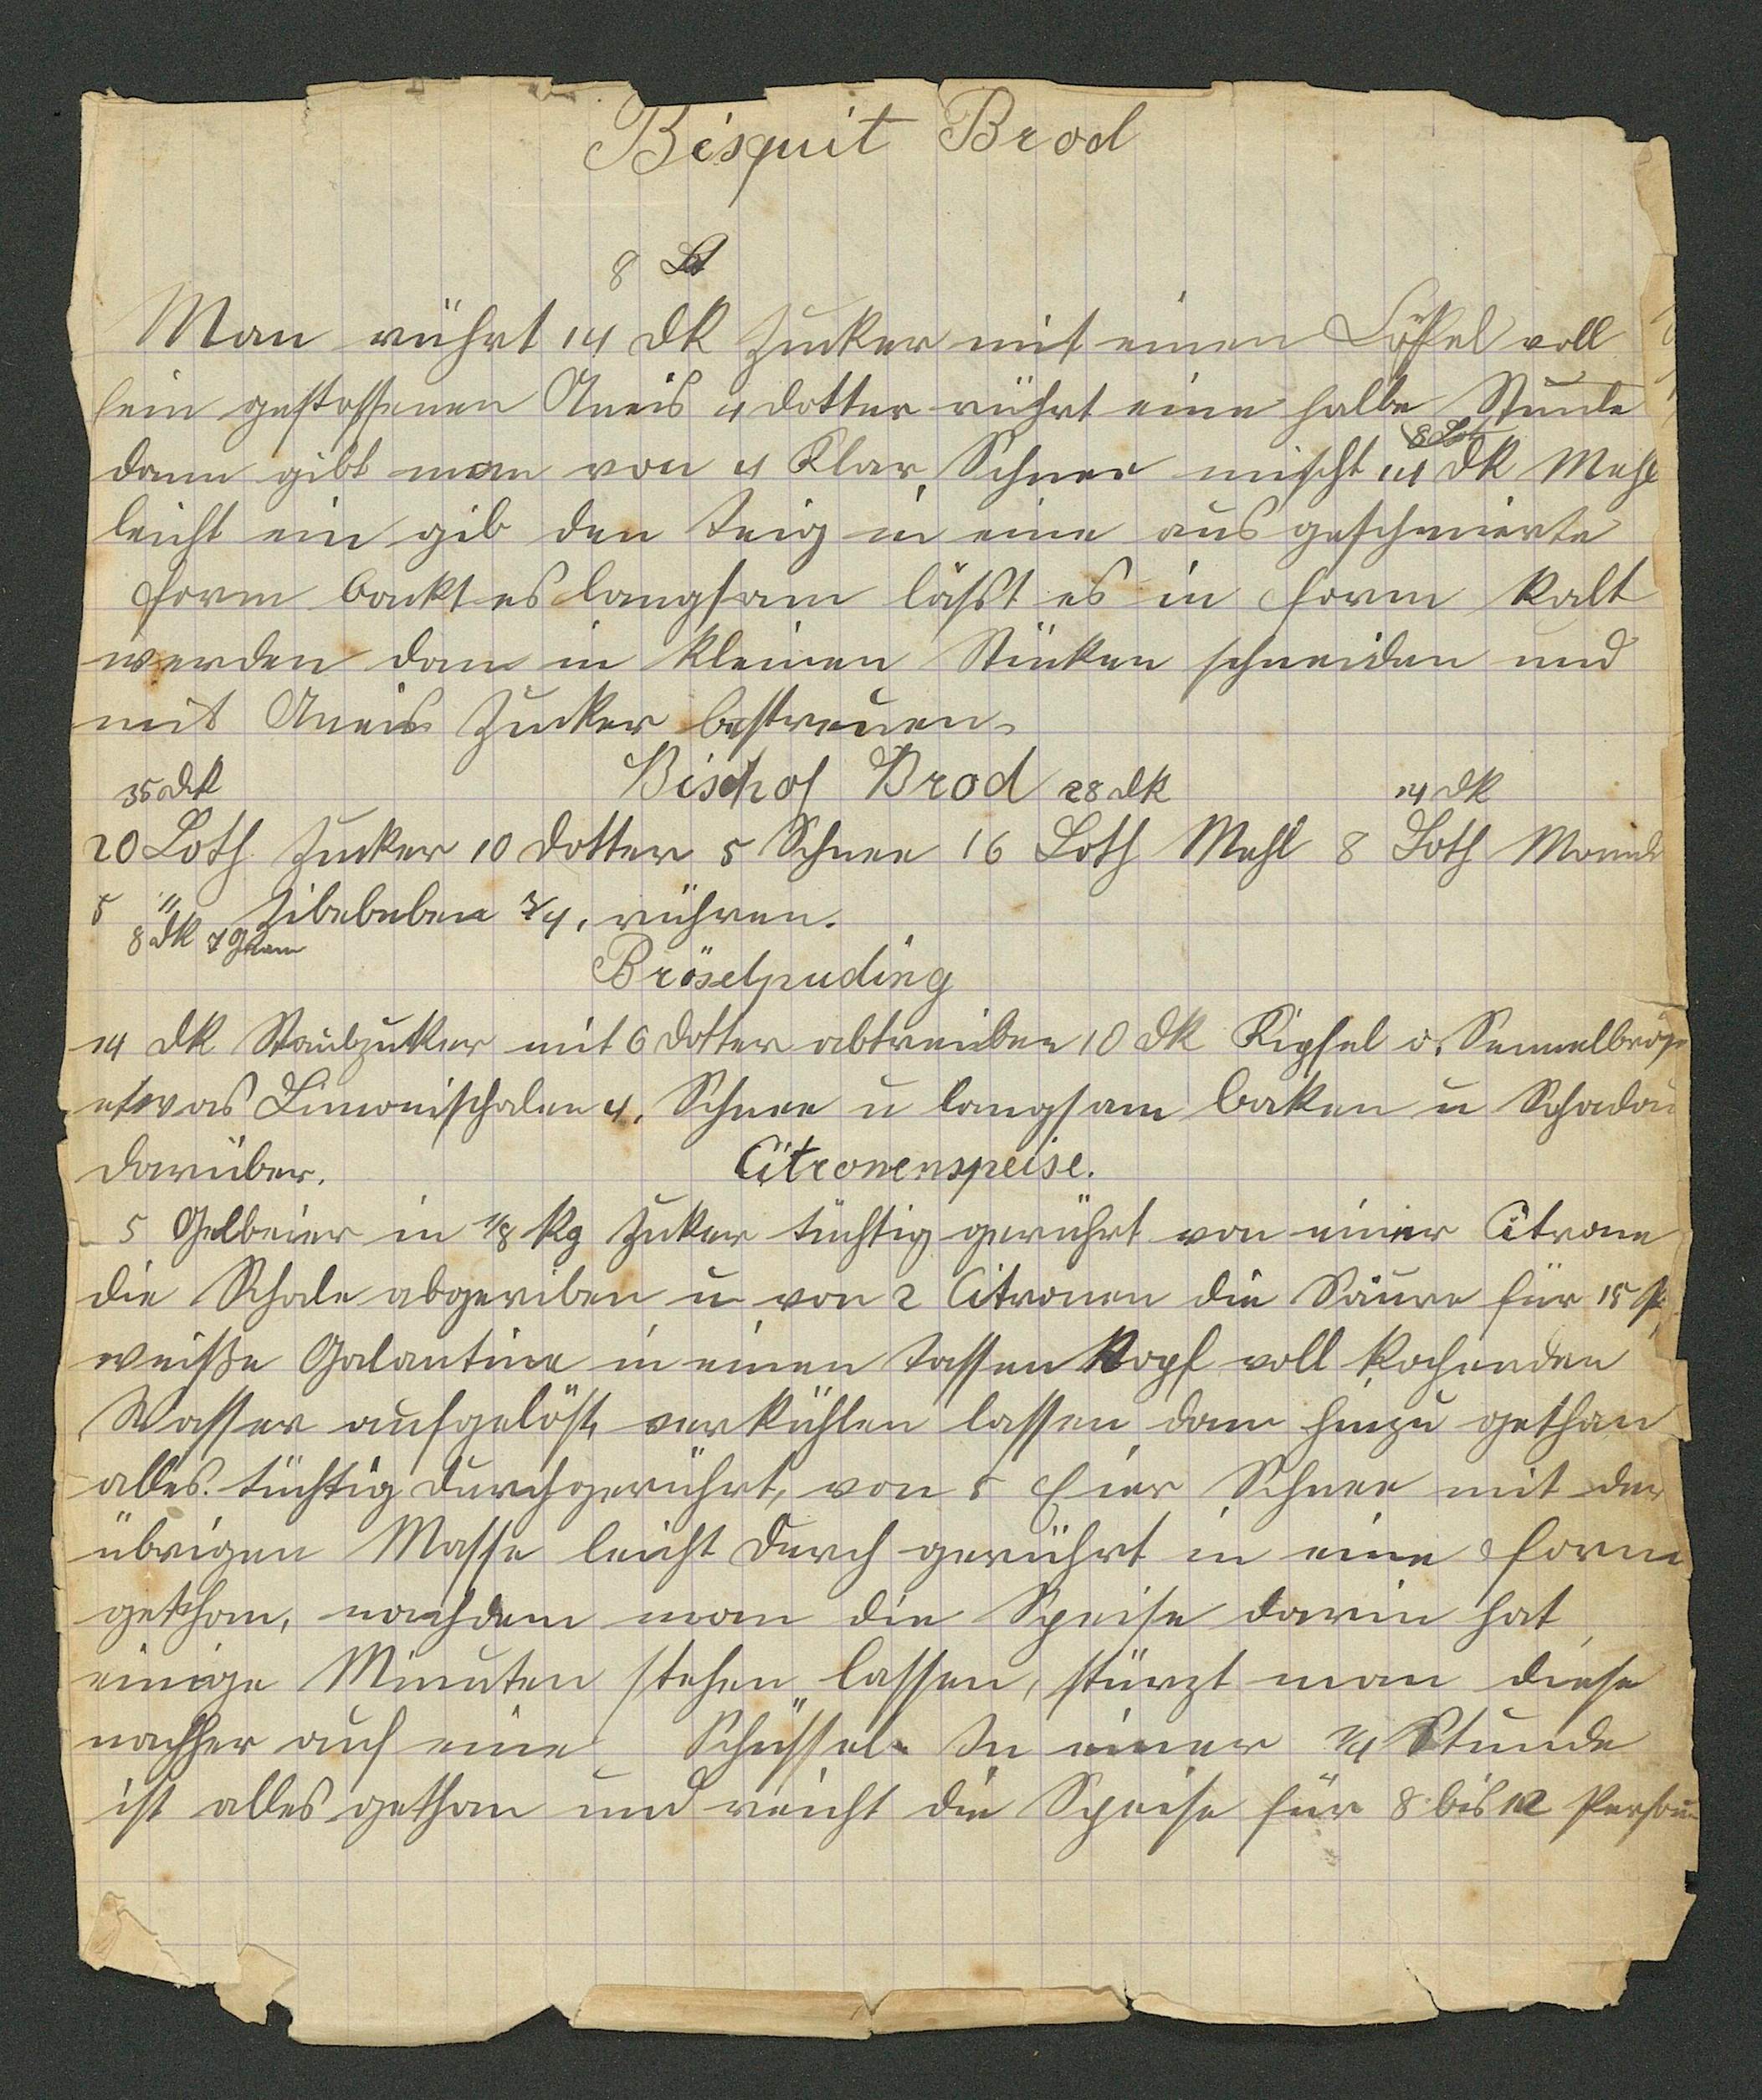 Bisquit Brod
8 Lt
Man rührt 14 dk Zucker mit einen Löffel voll
fein gestossenen Aneis 4 Dotter rührt eine halbe Stunde
8 Lot
dann gibt man von 4 Klar, Schnee mischt 14 dk Mehl
leicht ein gib den Teig in eine aus geschmierte
Form backt es langsam läßt es in Form kalt
werden dan in kleinen Stüken schneiden und
mit Aneis Zucker bestreuen.
Bischof Brod
35 dk 28 dk 14 dk
20 Loth Zucker 10 Dotter 5 Schnee 16 Loth Mehl 8 Loth Mand
5 " Zibebeben 3/4, rühren.
8 dk 7 gram
Bröselpuding
14 dk Staubzuker mit 6 Dotter abtreiben 10 dk Kipfel o. Semmelbrös
etwas Limonischalen 4, Schnee u langsam baken u Schadou
darüber.
Citronenspeise.
5 Gelbeier in 1/8 kg Zuker tüchtig gerührt von einer Citrone
die Schale abgeriben u von 2 Citronen die Säure für 15
weiße Galantine in einen Tassen Kopf voll kochenden
Wasser aufgelöst, verkühlen lassen, dann hinzu gethan
alles tüchtig durchgerührt, von 5 Eier Schnee mit der
übrigen Masse leicht durch gerührt in eine Form
gethan, nachdem man die Speise darin hat
einige Minuten stehen lassen, stürzt man diese
nachher auf eine Schüssel. In einer 3/4 Stunde
ist alles gethan und reicht die Speise für 8 bis 12 Person